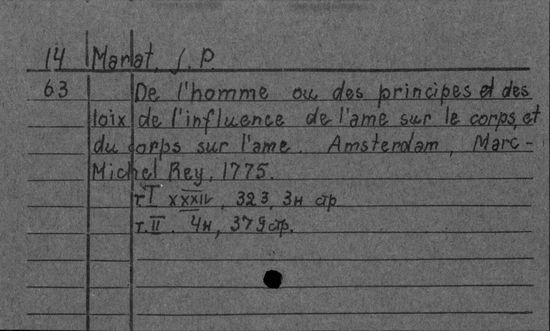 14 Marat, J. P.
63 De l'homme ou des principes et des
loix de l'influence de l'ame sur le corps, et
du corps sur l'ame. Amsterdam, Marc-
Michel Rey, 1775.
т. I XXXIV, 323, 3н стр
т. II. 4н, 379 стр.